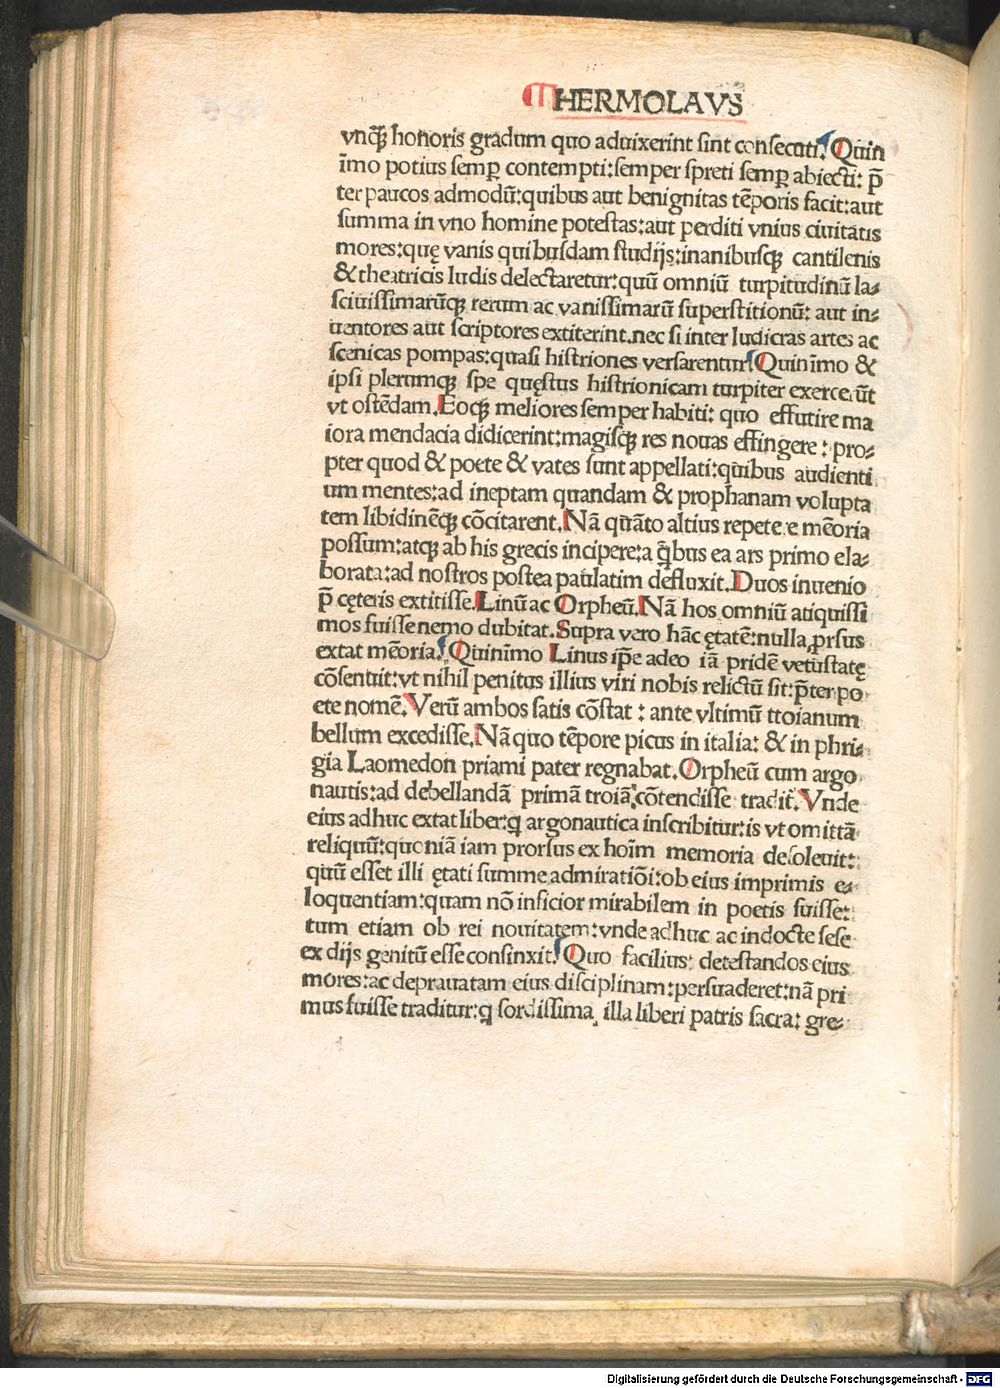 HERMOLAVS
vnqꝫ honoris gradum quo aduixerint sint consecuti. Quin
īmo potius semꝑ contempti: semper spreti semꝑ abiecti: p̄
ter paucos admodū: quibus aut benignitas tēporis facit: aut
summa in vno homine potestas: aut perditi vnius ciuitatis
mores: quę vanis quibusdam studijs: inanibusqꝫ cantilenis
& theatricis ludis delectaretur: quū omniū turpitudinū la⸗
sciuissimarūqꝫ rerum ac vanissimarū superstitionū: aut in⸗
uentores aut scriptores extiterint. nec si inter ludicras artes ac
scenicas pompas: quasi histriones versarentur. Quinīmo &
ipsi plerumqꝫ spe quęstus histrionicam turpiter exercēūt
vt ostēdam. Eoqꝫ meliores semper habiti: quo effutire ma
iora mendacia didicerint: magisqꝫ res nouas effingere: pro⸗
pter quod & poete & vates sunt appellati: quibus audienti
um mentes: ad ineptam quandam & prophanam volupta
tem libidinēqꝫ cōcitarent. Nā quāto altius repetere mēoria
possum: atqꝫ ab his grecis incipere: a q̄bus ea ars primo ela⸗
borata: ad nostros postea paulatim defluxit. Duos inuenio
p̄ cęteris extitisse. Linū ac Orpheū. Nā hos omniū atiquissi
mos fuisse nemo dubitat. Supra vero hāc ętatē: nulla ꝓrsus
extat mēoria. Quinīmo Linus ip̄e adeo iā pridē vetustatę
cōsenuit: vt nihil penitus illius viri nobis relictū sit: p̄ter po
ete nomē. Verū ambos satis cōstat: ante vltimū ttoianum
bellum excedisse. Nā quo tēpore picus in italia: & in phri⸗
gia Laomedon priami pater regnabat. Orpheū cum argo
nautis: ad debellandā primā troiā: cōtendisse tradit̄. Vnde
eius adhuc extat liber: q̄ argonautica inscribitur: is vt omittā
reliquū: quoniā iam prorsus ex hoīm memoria desoleuit:
quū esset illi ętati summe admiratiōi: ob eius imprimis e⸗
loquentiam: quam nō inficior mirabilem in poetis fuisse:
tum etiam ob rei nouitatem: vnde adhuc ac indocte sese
ex dijs genitū esse consinxit. Quo facilius: detestandos eius
mores: ac deprauatam eius disciplinam: persuaderet: nā pri
mus fuisse traditur: q̄ sordissima illa liberi patris sacra: gre⸗
Digitalisierung gefördert durch die Deutsche Forschungsgemeinschaft - DFG